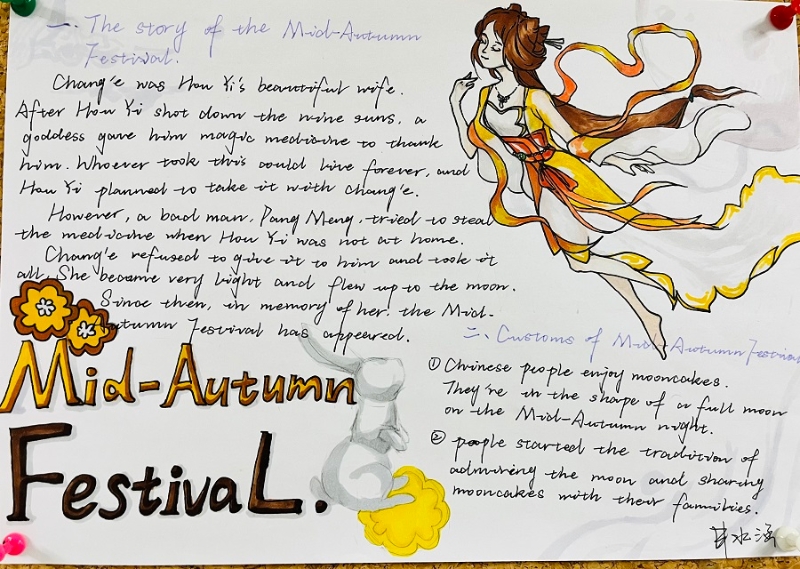 一. The story of the Mid-Autumn
Festival.
Chang'e was Hou Yi's beautiful wife.
After Hou Yi shot down the nine suns, a
goddess gave him magic medicine to thank
him. Whoever took this could live forever, and
Hou Yi planned to take it with Chang'e.
However, a bad man, Pang Meng, tried to steal
the medicine when Hou Yi was not at home.
Chang'e refused to give it to him and took it
all. She became very light and flew up to the moon.
Since then, in memory of her, the Mid-
Autumn Festival has appeared.
Mid-Autumn
FestivaL.
二、Customs of Mid-Autumn Festival
① Chinese people enjoy mooncakes.
They're in the shape of a full moon
on the Mid-Autumn night.
② people started the tradition of
admiring the moon and sharing
mooncakes with their families.
水涵